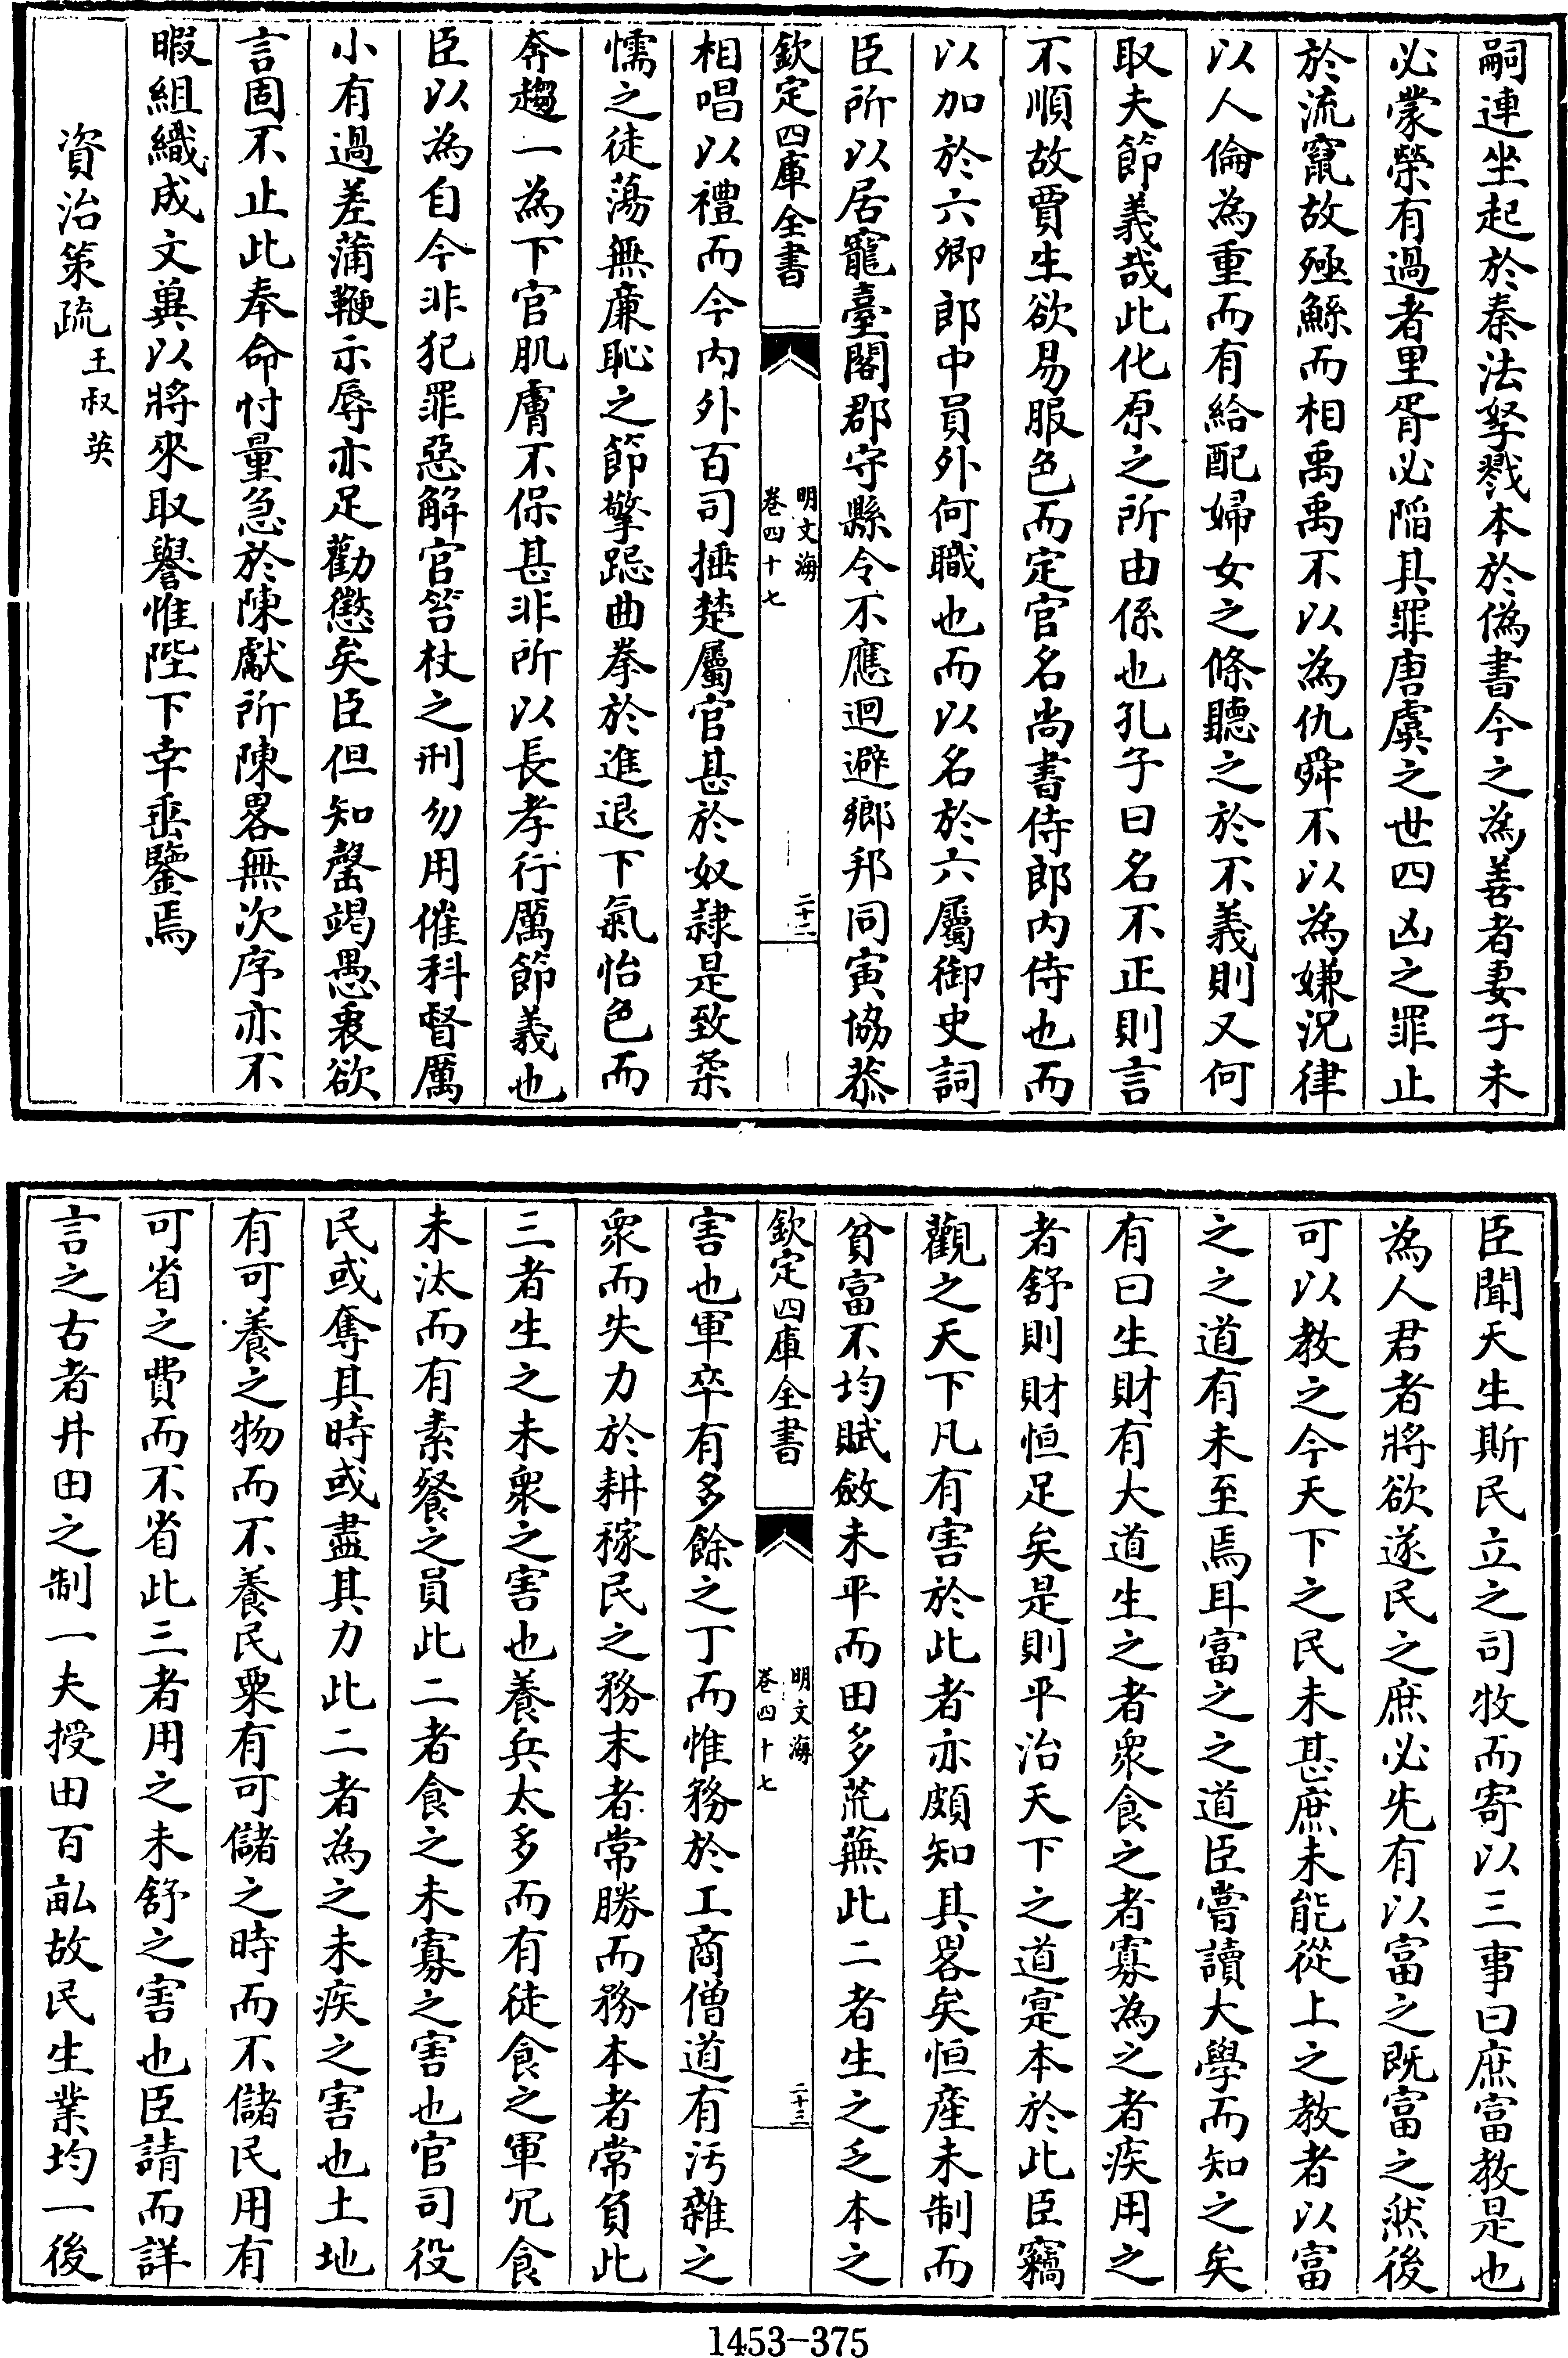 嗣連坐起於秦法孥戮本於偽書今之為善者妻子未
必蒙榮有過者里胥必陷其罪唐虞之世四凶之罪止
於流竄故殛鯀而相禹禹不以為仇舜不以為嫌況律
以人倫為重而有給配婦女之條聽之於不義則又何
取夫節義哉此化原之所由係也孔子曰名不正則言
不順故賈生欲易服色而定官名尚書侍郎內侍也而
以加於六卿郎中員外何職也而以名於六屬御史詞
臣所以居寵臺閣郡守縣令不應迴避鄉邦同寅協恭
欽定四庫全書
明文海
卷四十七
二十二
相唱以禮而今內外百司捶楚屬官甚於奴隸是致柔
懦之徒蕩無廉恥之節擎跽曲拳於進退下氣怡色而
奔趨一為下官肌膚不保甚非所以長孝行厲節義也
臣以為自今非犯罪惡解官笞杖之刑勿用催科督厲
小有過差蒲鞭示辱亦足勸懲矣臣但知罄竭愚衷欲
言固不止此奉命忖量急於陳獻所陳畧無次序亦不
暇組織成文冀以將來取譽惟陛下幸垂鑒焉
資治策疏 王叔英
臣聞天生斯民立之司牧而寄以三事曰庶富教是也
為人君者將欲遂民之庶必先有以富之既富之然後
可以教之今天下之民未甚庶未能從上之教者以富
之之道有未至焉耳富之之道臣嘗讀大學而知之矣
有曰生財有大道生之者衆食之者寡為之者疾用之
者舒則財恒足矣是則平治天下之道寔本於此臣竊
觀之天下凡有害於此者亦頗知其畧矣恒產未制而
貧富不均賦斂未平而田多荒蕪此二者生之乏本之
欽定四庫全書
明文海
卷四十七
二十三
害也軍卒有多餘之丁而惟務於工商僧道有污雜之
衆而失力於耕稼民之務末者常勝而務本者常負此
三者生之未衆之害也養兵太多而有徒食之軍冗食
未汰而有素餐之員此二者食之未寡之害也官司役
民或奪其時或盡其力此二者為之未疾之害也土地
有可養之物而不養民粟有可儲之時而不儲民用有
可省之費而不省此三者用之未舒之害也臣請而詳
言之古者井田之制一夫授田百畝故民生業均一後
1453-375